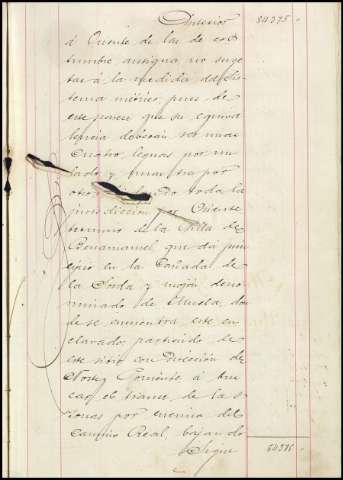 Anterior 54375
á Oriente de las de cos
tumbre antigua, no suge
tas á la medida del sis
tema métrico, pues de
este parece que su equiva
lencia deberán ser unas
cuatro leguas por un
lado y cuatro por
otro toda la
jurisdicción por Oriente
termino de la Villa de
Benamaurel, que dá prin
cipio en la Cañada de
la Sorda y mojon deno
minado de don
de se encuentra este en
clavado, partiendo de
este sitio con direccion de
Norte y Poniente á
el de las
por encima del
Camino Real, bajando
Sigue